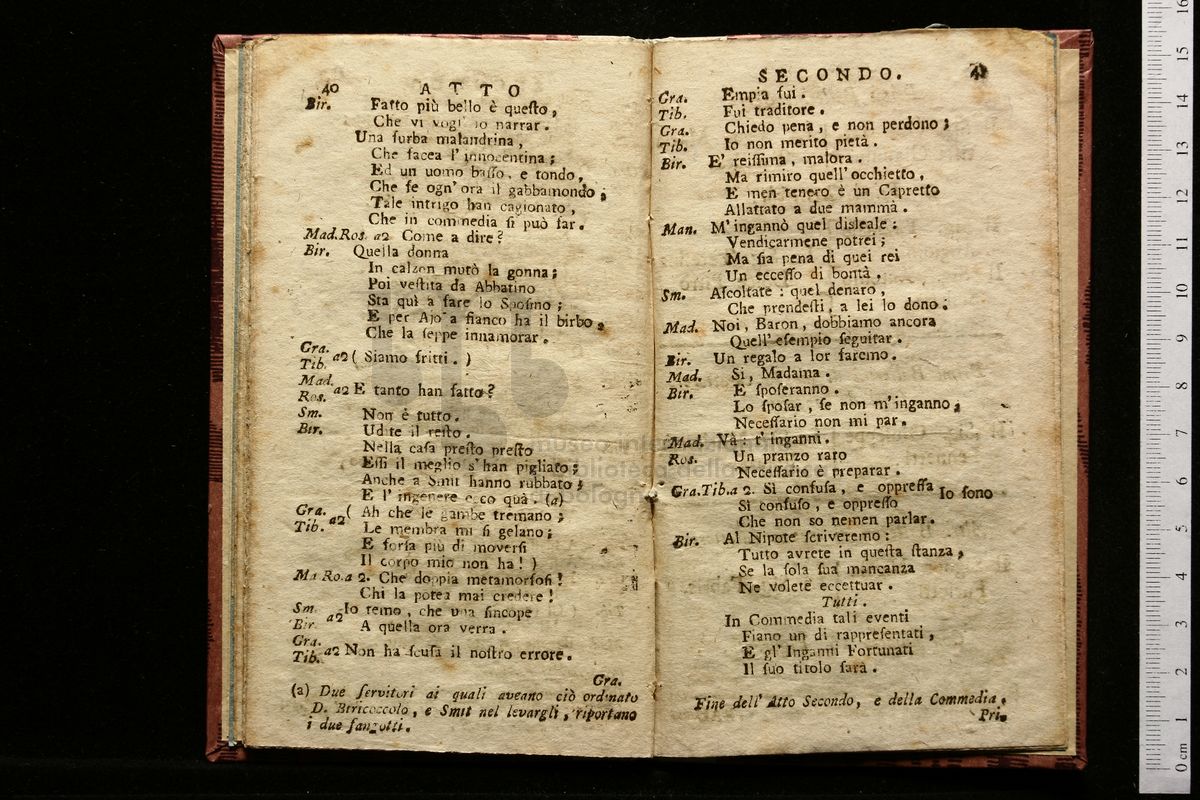 40 ATTO
Bir. Fatto più bello è queſto,
Che vi vogl' io narrar.
Una furba malandrina,
Che facea l' innocentina;
Ed un uomo baſſo, e tondo,
Che fe ogn' ora il gabbamondo;
Tale intrigo han cagionato,
Che in commedia ſi può far.
Mad. Ros. a2 Come a dire?
Bir. Quella donna
In calzon mutò la gonna;
Poi veſtita da Abbatino
Sta quì a fare lo Spoſino;
E per Ajo a fianco ha il birbo,
Che la ſeppe innamorar.
Gra.
Tib. a2 ( Siamo fritti. )
Mad.
Ros. a2 E tanto han fatto?
Sm. Non è tutto.
Bir. Udite il reſto.
Nella caſa preſto preſto
Eſſi il meglio s' han pigliato;
Anche a Smit hanno rubbato;
E l' ingenere ecco quà. (a)
Gra. ( Ah che le gambe tremano;
Tib. a2 Le membra mi ſi gelano;
E forſa più di moverſi
Il corpo mio non ha! )
Ma Ro. a 2. Che doppia metamorfoſi!
Chi la potea mai credere!
Sm. Io temo, che una ſincope
Bir. a2 A quella ora verra.
Gra.
Tib. a2 Non ha ſcuſa il noſtro errore.
Gra.
(a) Due ſervitori ai quali aveano ciò ordinato
D. Biricoccolo, e Smit nel levargli, riportano
i due fangotti.
SECONDO. 41
Gra. Empia fui.
Tib. Fui traditore.
Gra. Chiedo pena, e non perdono;
Tib. Io non merito pietà.
Bir. E' reiſſima, malora.
Ma rimiro quell' occhietto,
E men tenero è un Capretto
Allattato a due mammà.
Man. M' ingannò quel disleale:
Vendicarmene potrei;
Ma ſia pena di quei rei
Un ecceſſo di bontà.
Sm. Aſcoltate: quel denaro,
Che prendeſti, a lei lo dono.
Mad. Noi, Baron, dobbiamo ancora
Quell' eſempio ſeguitar.
Bir. Un regalo a lor faremo.
Mad. Si, Madama.
Bir. E ſpoſeranno.
Lo ſpoſar, ſe non m' inganno,
Neceſſario non mi par.
Mad. Và: t' inganni.
Ros. Un pranzo raro
Neceſſario è preparar.
Gra. Tib. a 2. Sì confuſa, e oppreſſa Io ſono
Sì confuſo, e oppreſſo
Che non so nemen parlar.
Bir. Al Nipote ſcriveremo:
Tutto avrete in queſta ſtanza,
Se la ſola ſua mancanza
Ne volete eccettuar.
Tutti.
In Commedia tali eventi
Fiano un di rappreſentati,
E gl' Inganni Fortunati
Il ſuo titolo ſarà.
Fine dell' Atto Secondo, e della Commedia.
Pri.